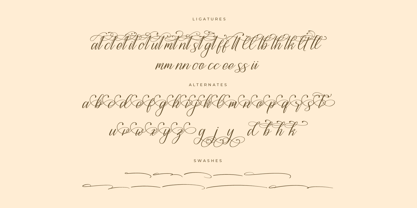 LIGATURES
at ct et it ot ut mt nt st gt ff tt ll lb lh lk tl ll
mm nn oo cc ee ss ii
ALTERNATES
a b c d e f g h i j k l m n o p q r s t
u v w x y z g j y d b h k
SWASHES